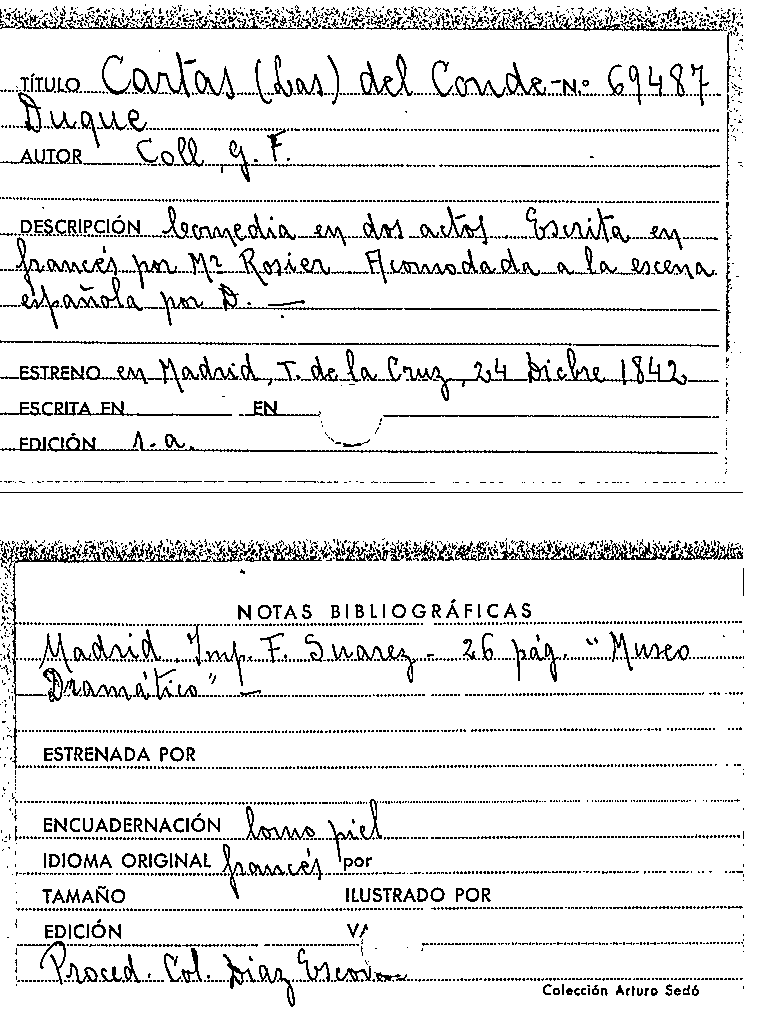 TÍTULO Cartas (Las) del Conde- N.º 69487
Duque
AUTOR Coll, G. F.
DESCRIPCIÓN Comedia en dos actos. Escrita en
francés por Mr. Rosier Acomodada a la escena
española por D. —
ESTRENO en Madrid, T. de la Cruz, 24 Dicbre 1842
ESCRITA EN EN
EDICIÓN 1.a.
NOTAS BIBLIOGRÁFICAS
Madrid. Imp. F. Suarez - 26 pág. "Museo
Dramático" —
ESTRENADA POR
ENCUADERNACIÓN lomo piel
IDIOMA ORIGINAL francés por
TAMAÑO ILUSTRADO POR
EDICIÓN
Proced. Col. Díaz
Colección Arturo Sedó